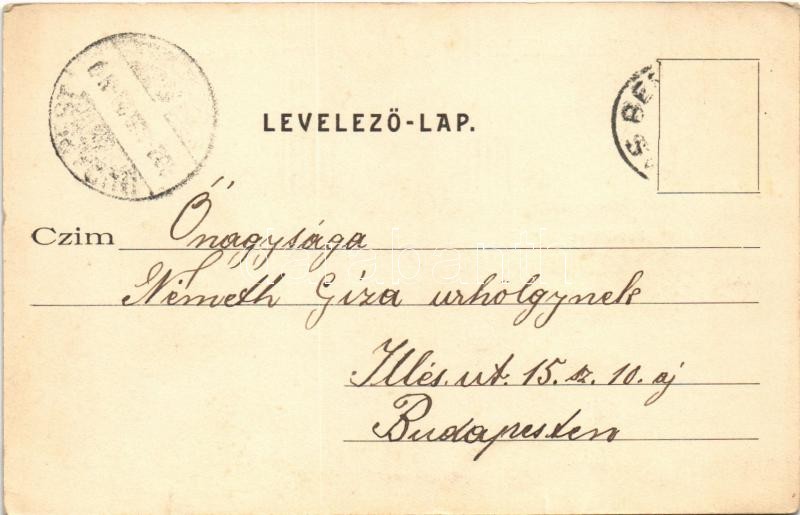 LEVELEZŐ-LAP.
Czim Őnagysága
Németh Giza urhölgynek
Illés. ut. 15. sz. 10. aj
Budapesten